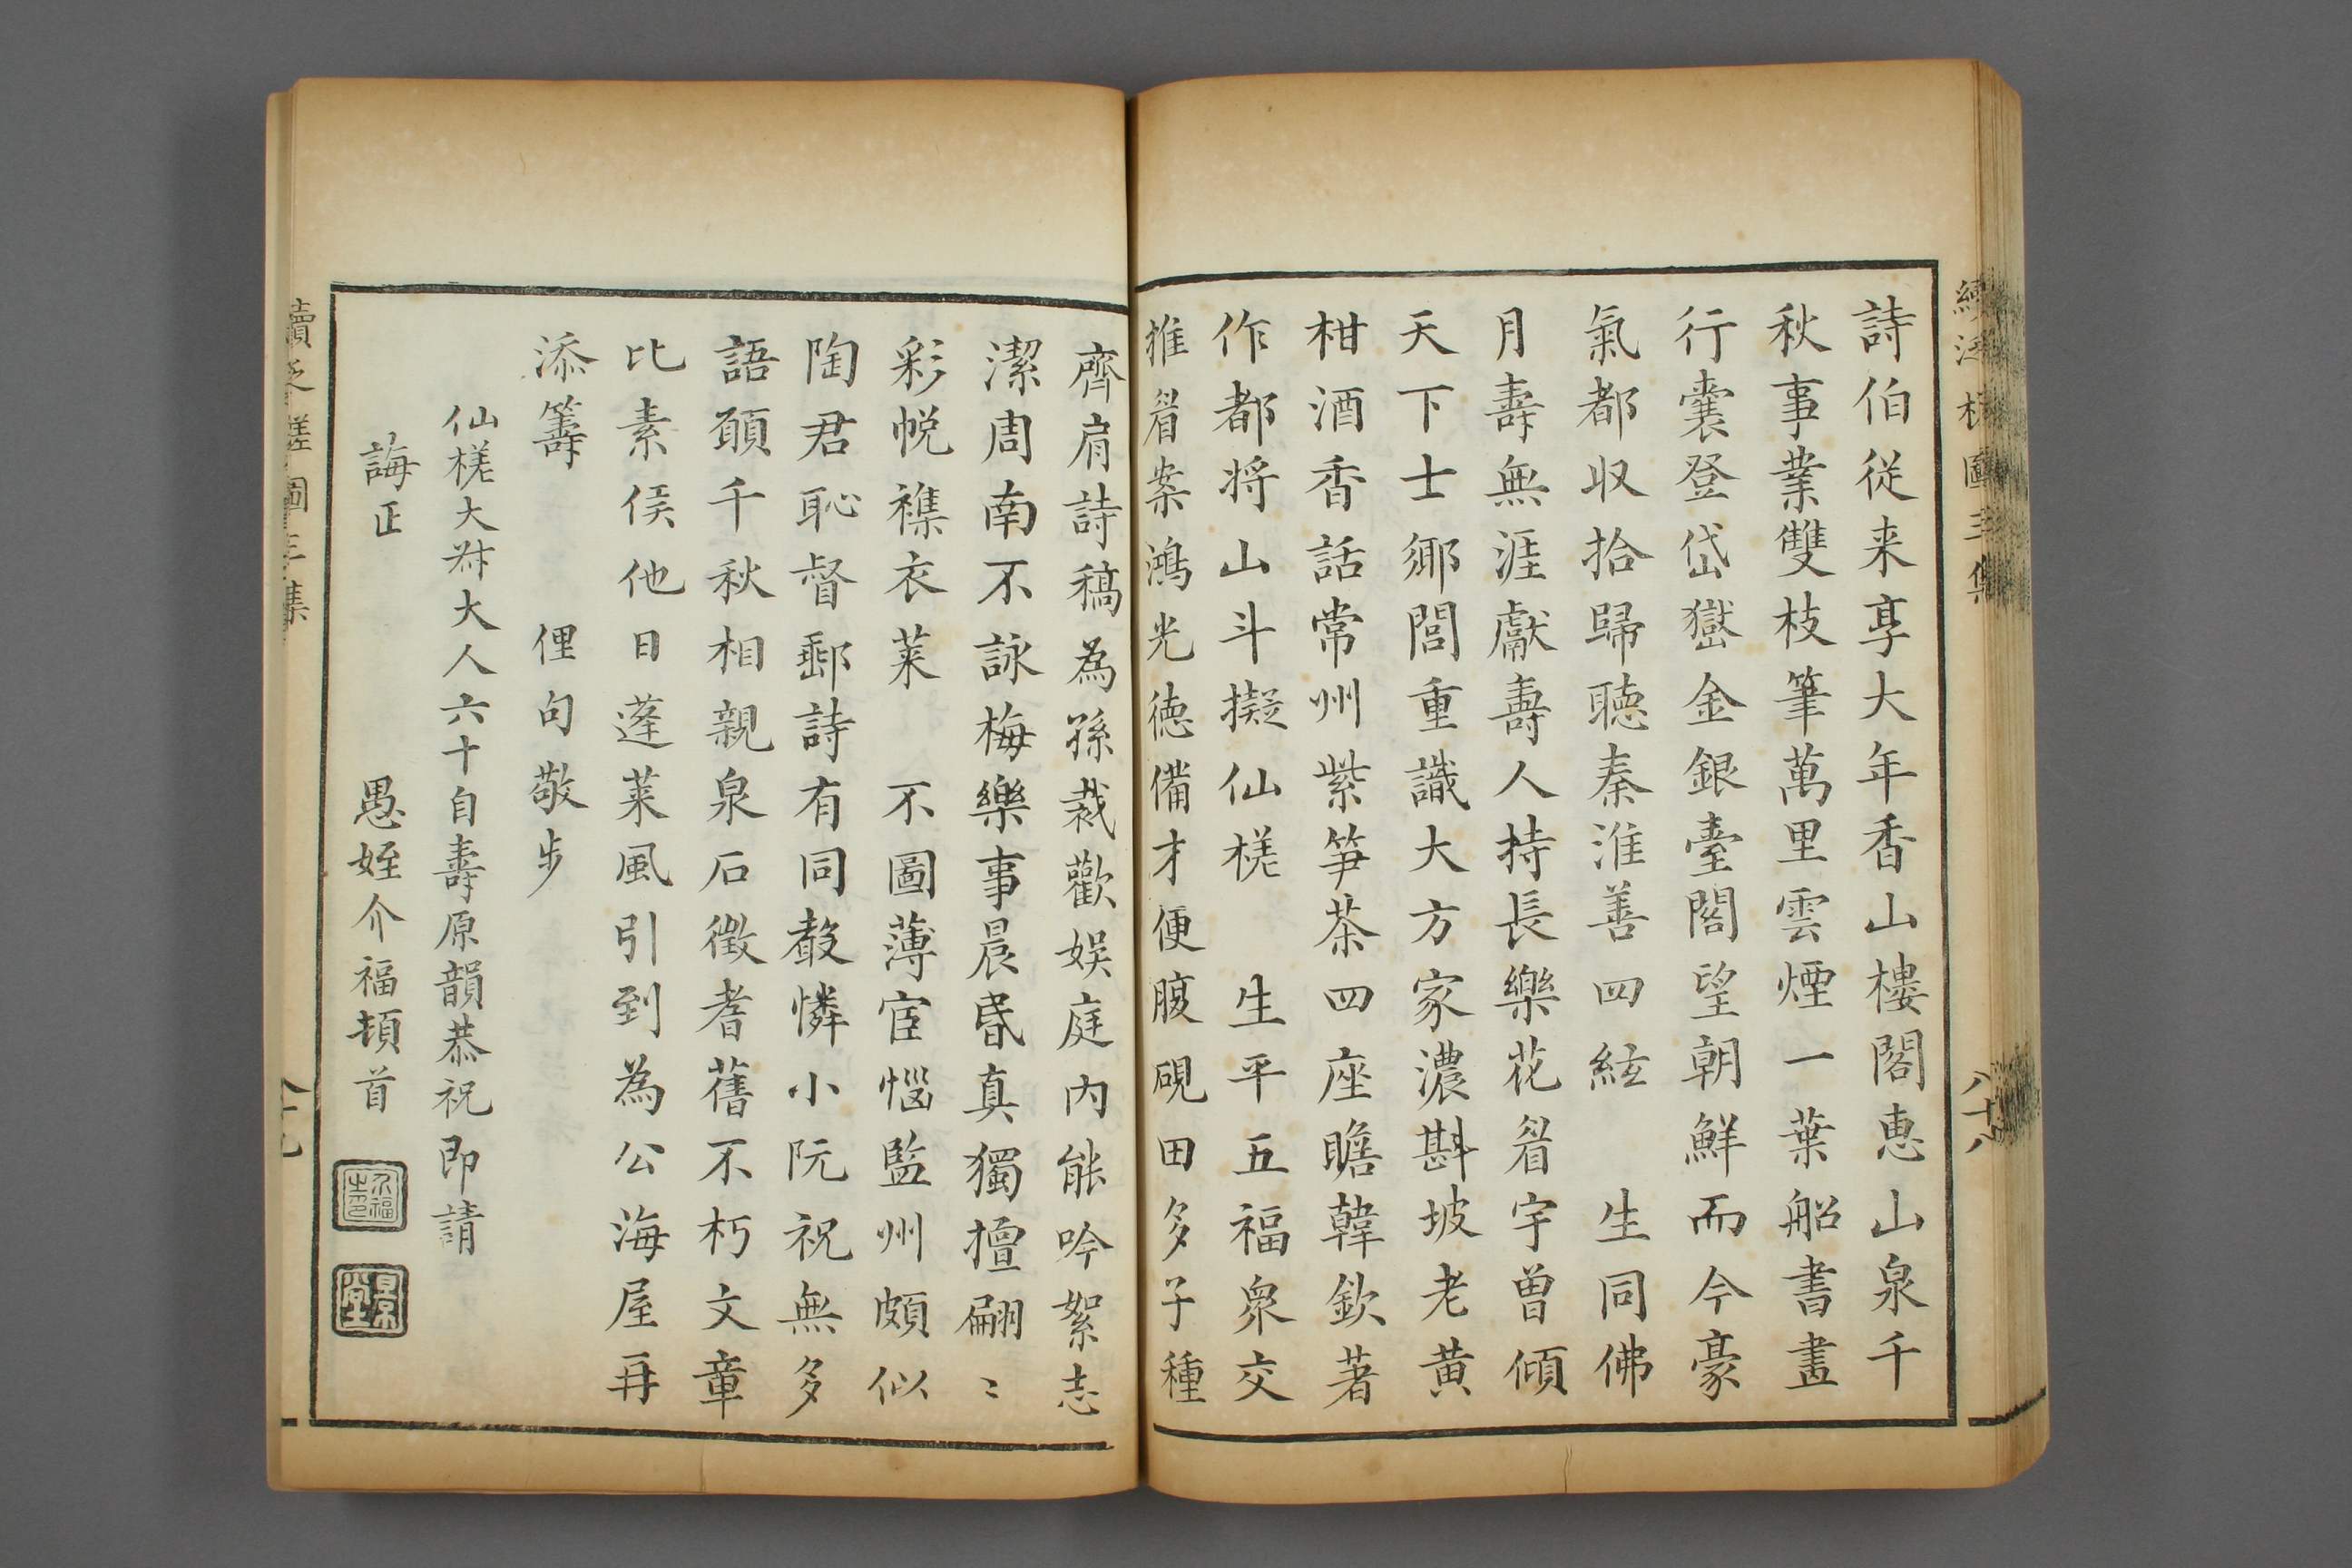 詩伯従来享大年香山樓閣惠山泉千
秋事業雙枝筆萬里雲煙一葉船書畫
行囊登岱嶽金銀臺閣望朝鮮而今豪
氣都収拾歸聴秦淮善四絃 生同佛
月壽無涯獻壽人持長樂花眉宇曾傾
天下士鄉閭重識大方家濃斟坡老黄
柑酒香話常州紫笋茶四座瞻韓欽著
作都將山斗擬仙槎 生平五福衆交
推眉案鴻光徳備才便腹硯田多子種
續泛槎圖三集
八十八
齊肩詩稿為孫裁歡娱庭内能吟絮志
潔周南不詠梅樂事晨昏真獨擅翩〻
彩帨襍衣萊 不圖薄宦惱監州頗似
陶君恥督郵詩有同聲憐小阮祝無多
語頋千秋相親泉石徵耆舊不朽文章
比素侯他日蓬萊風引到為公海屋再
添籌 俚句敬步
仙槎大叔大人六十自壽原韻恭祝即請
誨正 愚姪介福頓首
介福
景堂
續泛槎圖三集